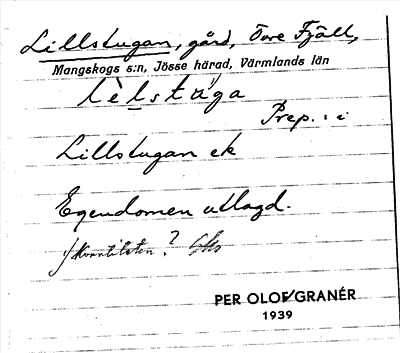 Lillstugan, gård, Övre Fjäll,
Mangskogs s:n, Jösse härad, Värmlands län
lèlstúga
Prep. : i
Lillstugan ek
Egendomen utlagd.
PER OLOF GRANÉR
1939